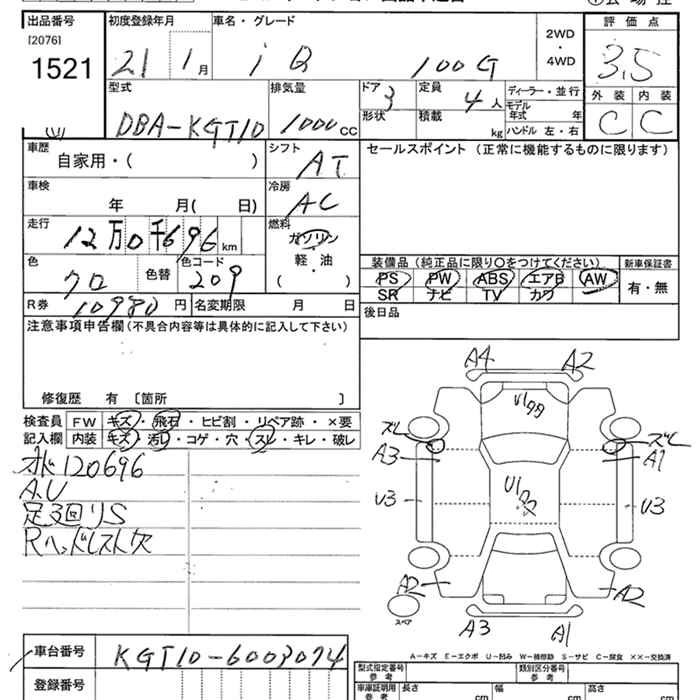 出品番号 初度登録年月 車名・グレード 評価点
[2076]
1521
21 1月 iQ 100G
2WD
・
4WD
3.5
型式 排気量 ドア 定員 ディーラー・並行 外装 内装
DBA-KGJ10 1000cc 3 4人
形状 積載 kg
モデル年式 年
ハンドル 左・右
C C
車歴 自家用・( )
シフト AT
セールスポイント (正常に機能するものに限ります)
車検 年 月( 日)
冷房 AC
走行 12万0千696km
燃料 ガソリン
軽・油
( ・ )
色 クロ 色替 色コード 209
装備品 (純正品に限り○をつけてください) 新車保証書
PS PW ABS エアB AW 有・無
SR ナビ TV カワ
R券 10980円 名変期限 月 日
後日品
注意事項申告欄(不具合内容等は具体的に記入して下さい)
修復歴 有 〔箇所 〕
検査員 FW キズ・飛石・ヒビ割・リペア跡・×要
記入欄 内装 キズ・汚レ・コゲ・穴・スレ・キレ・破レ
120696
A.U
足廻りS
Rヘッドレスト欠
A4 A2
ズレ ズレ
A3 A1
U3 U3
A2 A2
スペア
A3 A1
A-キズ E-エクボ U-凹み W-補修跡 S-サビ C-腐食 ××-交換済
車台番号 KGJ10-6003074
登録番号
型式指定番号 参考 類別区分番号 参考
車庫証明用 参考 長さ cm 幅 cm 高さ cm